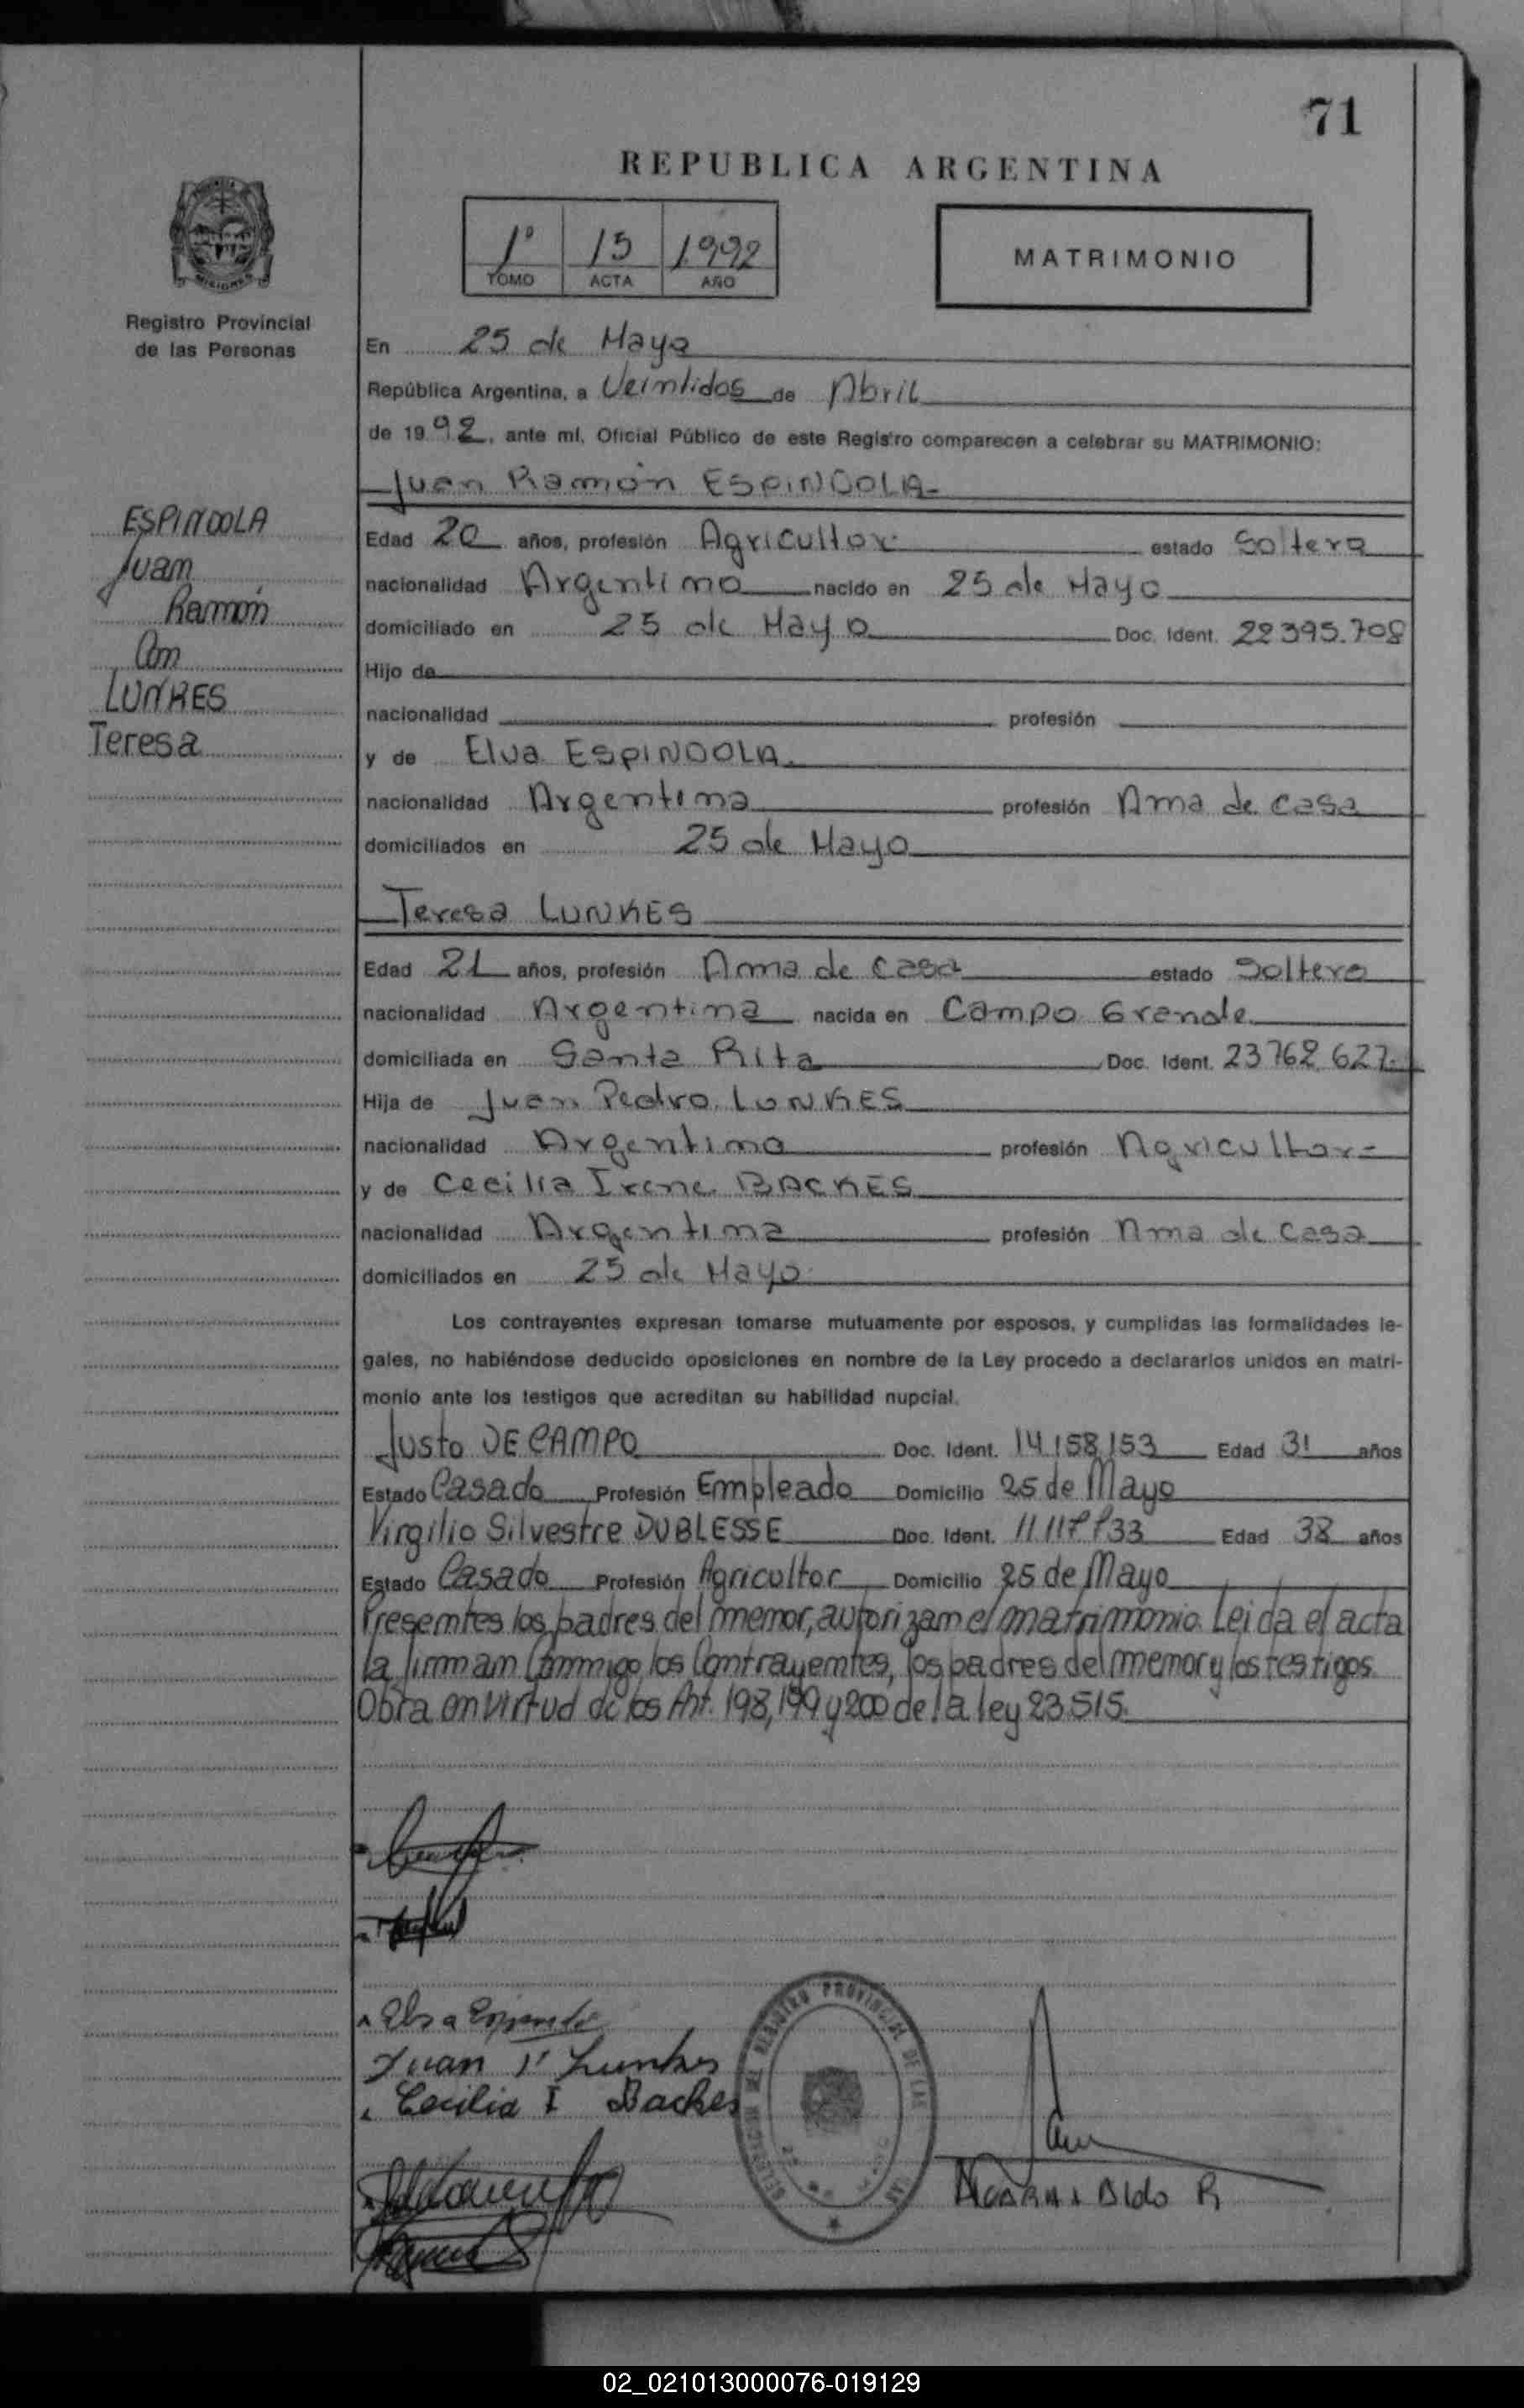 71
REPUBLICA ARGENTINA
1º 15 1992
TOMO ACTA AÑO
MATRIMONIO
MISIONES
Registro Provincial
de las Personas
ESPINDOLA
Juan
Ramón
Con
LUNKES
Teresa
En 25 de Mayo
República Argentina, a Veintidos de Abril
de 1992, ante mí, Oficial Público de este Registro comparecen a celebrar su MATRIMONIO:
Juan Ramón ESPINDOLA-
Edad 20 años, profesión Agricultor estado Soltero
nacionalidad Argentino nacido en 25 de Mayo
domiciliado en 25 de Mayo Doc. Ident. 22395.708
Hijo de
nacionalidad profesión
y de Elva ESPINDOLA
nacionalidad Argentina profesión Ama de casa
domiciliados en 25 de Mayo
Teresa LUNKES
Edad 21 años, profesión Ama de casa estado Soltera
nacionalidad Argentina nacida en Campo Grande
domiciliada en Santa Rita Doc. Ident. 23762.627
Hija de Juan Pedro LUNKES
nacionalidad Argentino profesión Agricultor-
y de Cecilia Irene BACKES
nacionalidad Argentina profesión Ama de casa
domiciliados en 25 de Mayo
Los contrayentes expresan tomarse mutuamente por esposos, y cumplidas las formalidades le-
gales, no habiéndose deducido oposiciones en nombre de la Ley procedo a declararlos unidos en matri-
monio ante los testigos que acreditan su habilidad nupcial.
Justo DE CAMPO Doc. Ident. 14.158.153 Edad 31 años
Estado Casado Profesión Empleado Domicilio 25 de Mayo
Virgilio Silvestre DUBLESSE Doc. Ident. Edad 38 años
Estado Casado Profesión Agricultor Domicilio 25 de Mayo
Presentes los padres del menor, autorizan el matrimonio. Leida el acta
la firman Conmigo los Contrayentes, los padres del menor y los testigos.
Obra en virtud de los Art. 198, 199 y 200 de la ley 23.515.
Juan P Lunkes
Cecilia I Backes
REGISTRO PROVINCIAL DE LAS
Aldo R
02_021013000076-019129